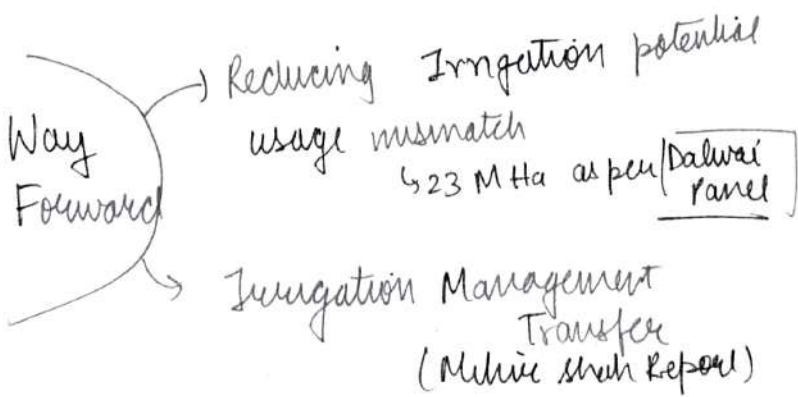 Way
Forward
Reducing Irrigation potential
usage mismatch
↳ 23 M Ha as per Dalwai
Panel
Irrigation Management
Transfer
(Mihir Shah Report)